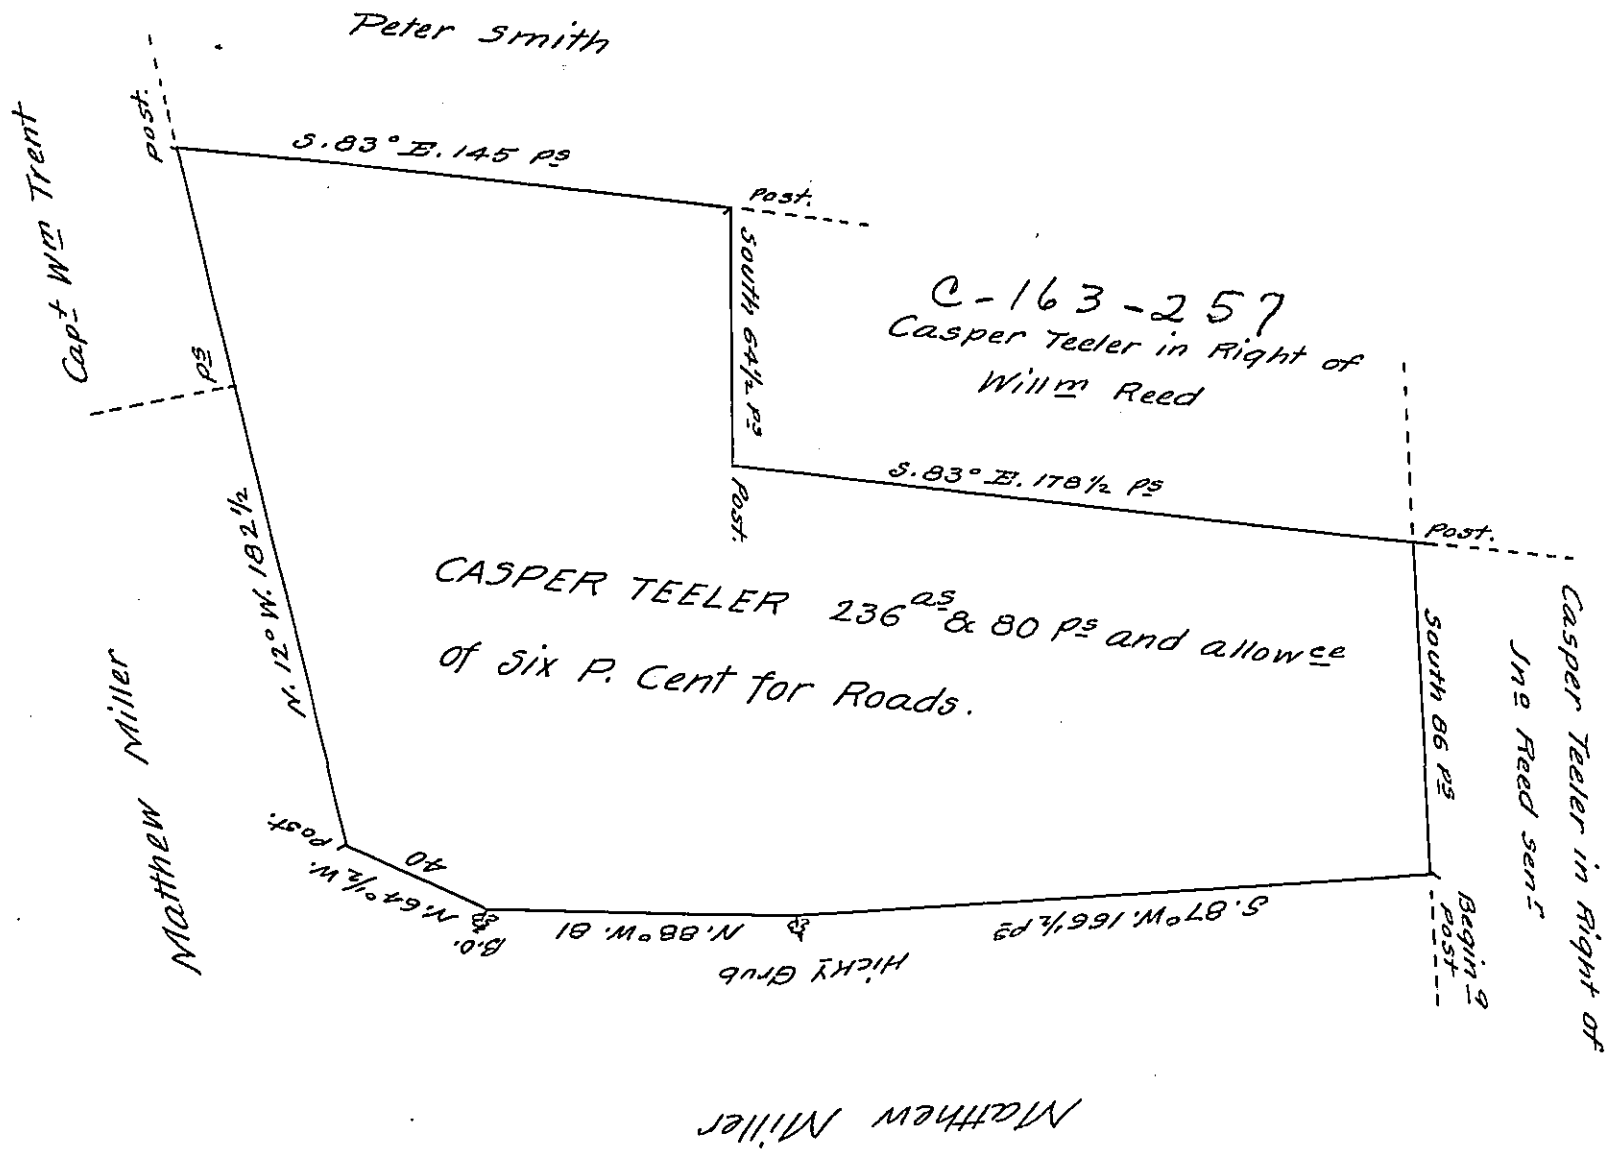 Peter Smith
Post.
S. 83° E. 145 Ps
Post.
Capt Wm Trent
South 64½ Ps
C-163-257
Casper Teeler in Right of
Willm Reed
Ps
N. 12° W. 182½
S. 83° E. 178½ Ps
Post.
Post.
CASPER TEELER 236 as & 80 Ps and allowce
of Six P. Cent for Roads.
South 86 Ps
Casper Teeler in Right of
Jno Reed senr
Matthew Miller
Post.
N. 64°½ W.
40
B.O.
N. 88° W. 81
Hicky Grub
S. 87° W. 166½ Ps
Begin g
Post
Matthew Miller